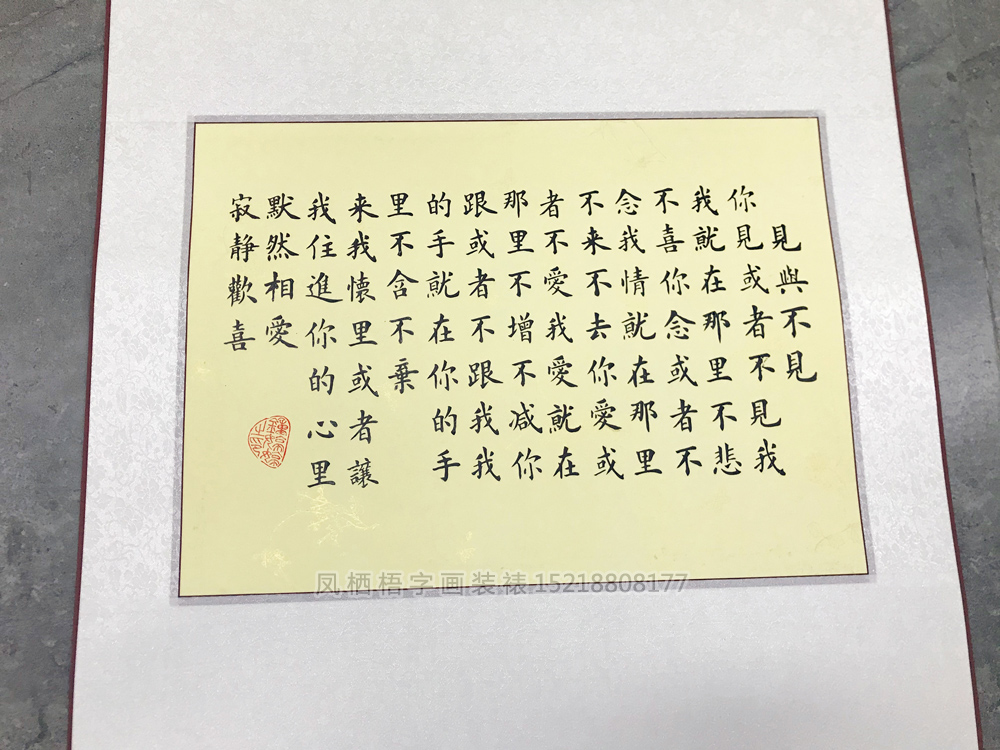 見與不見
你見或者不見我
我就在那里不悲
不喜你念或者不
念我情就在那里
不来不去你愛或
者不愛我愛就在
那里不增不减你
跟或者不跟我我
的手就在你的手
里不含不棄
来我懷里或者讓
我住進你的心里
默然相愛
寂静歡喜
凤栖梧字画装裱 15218808177